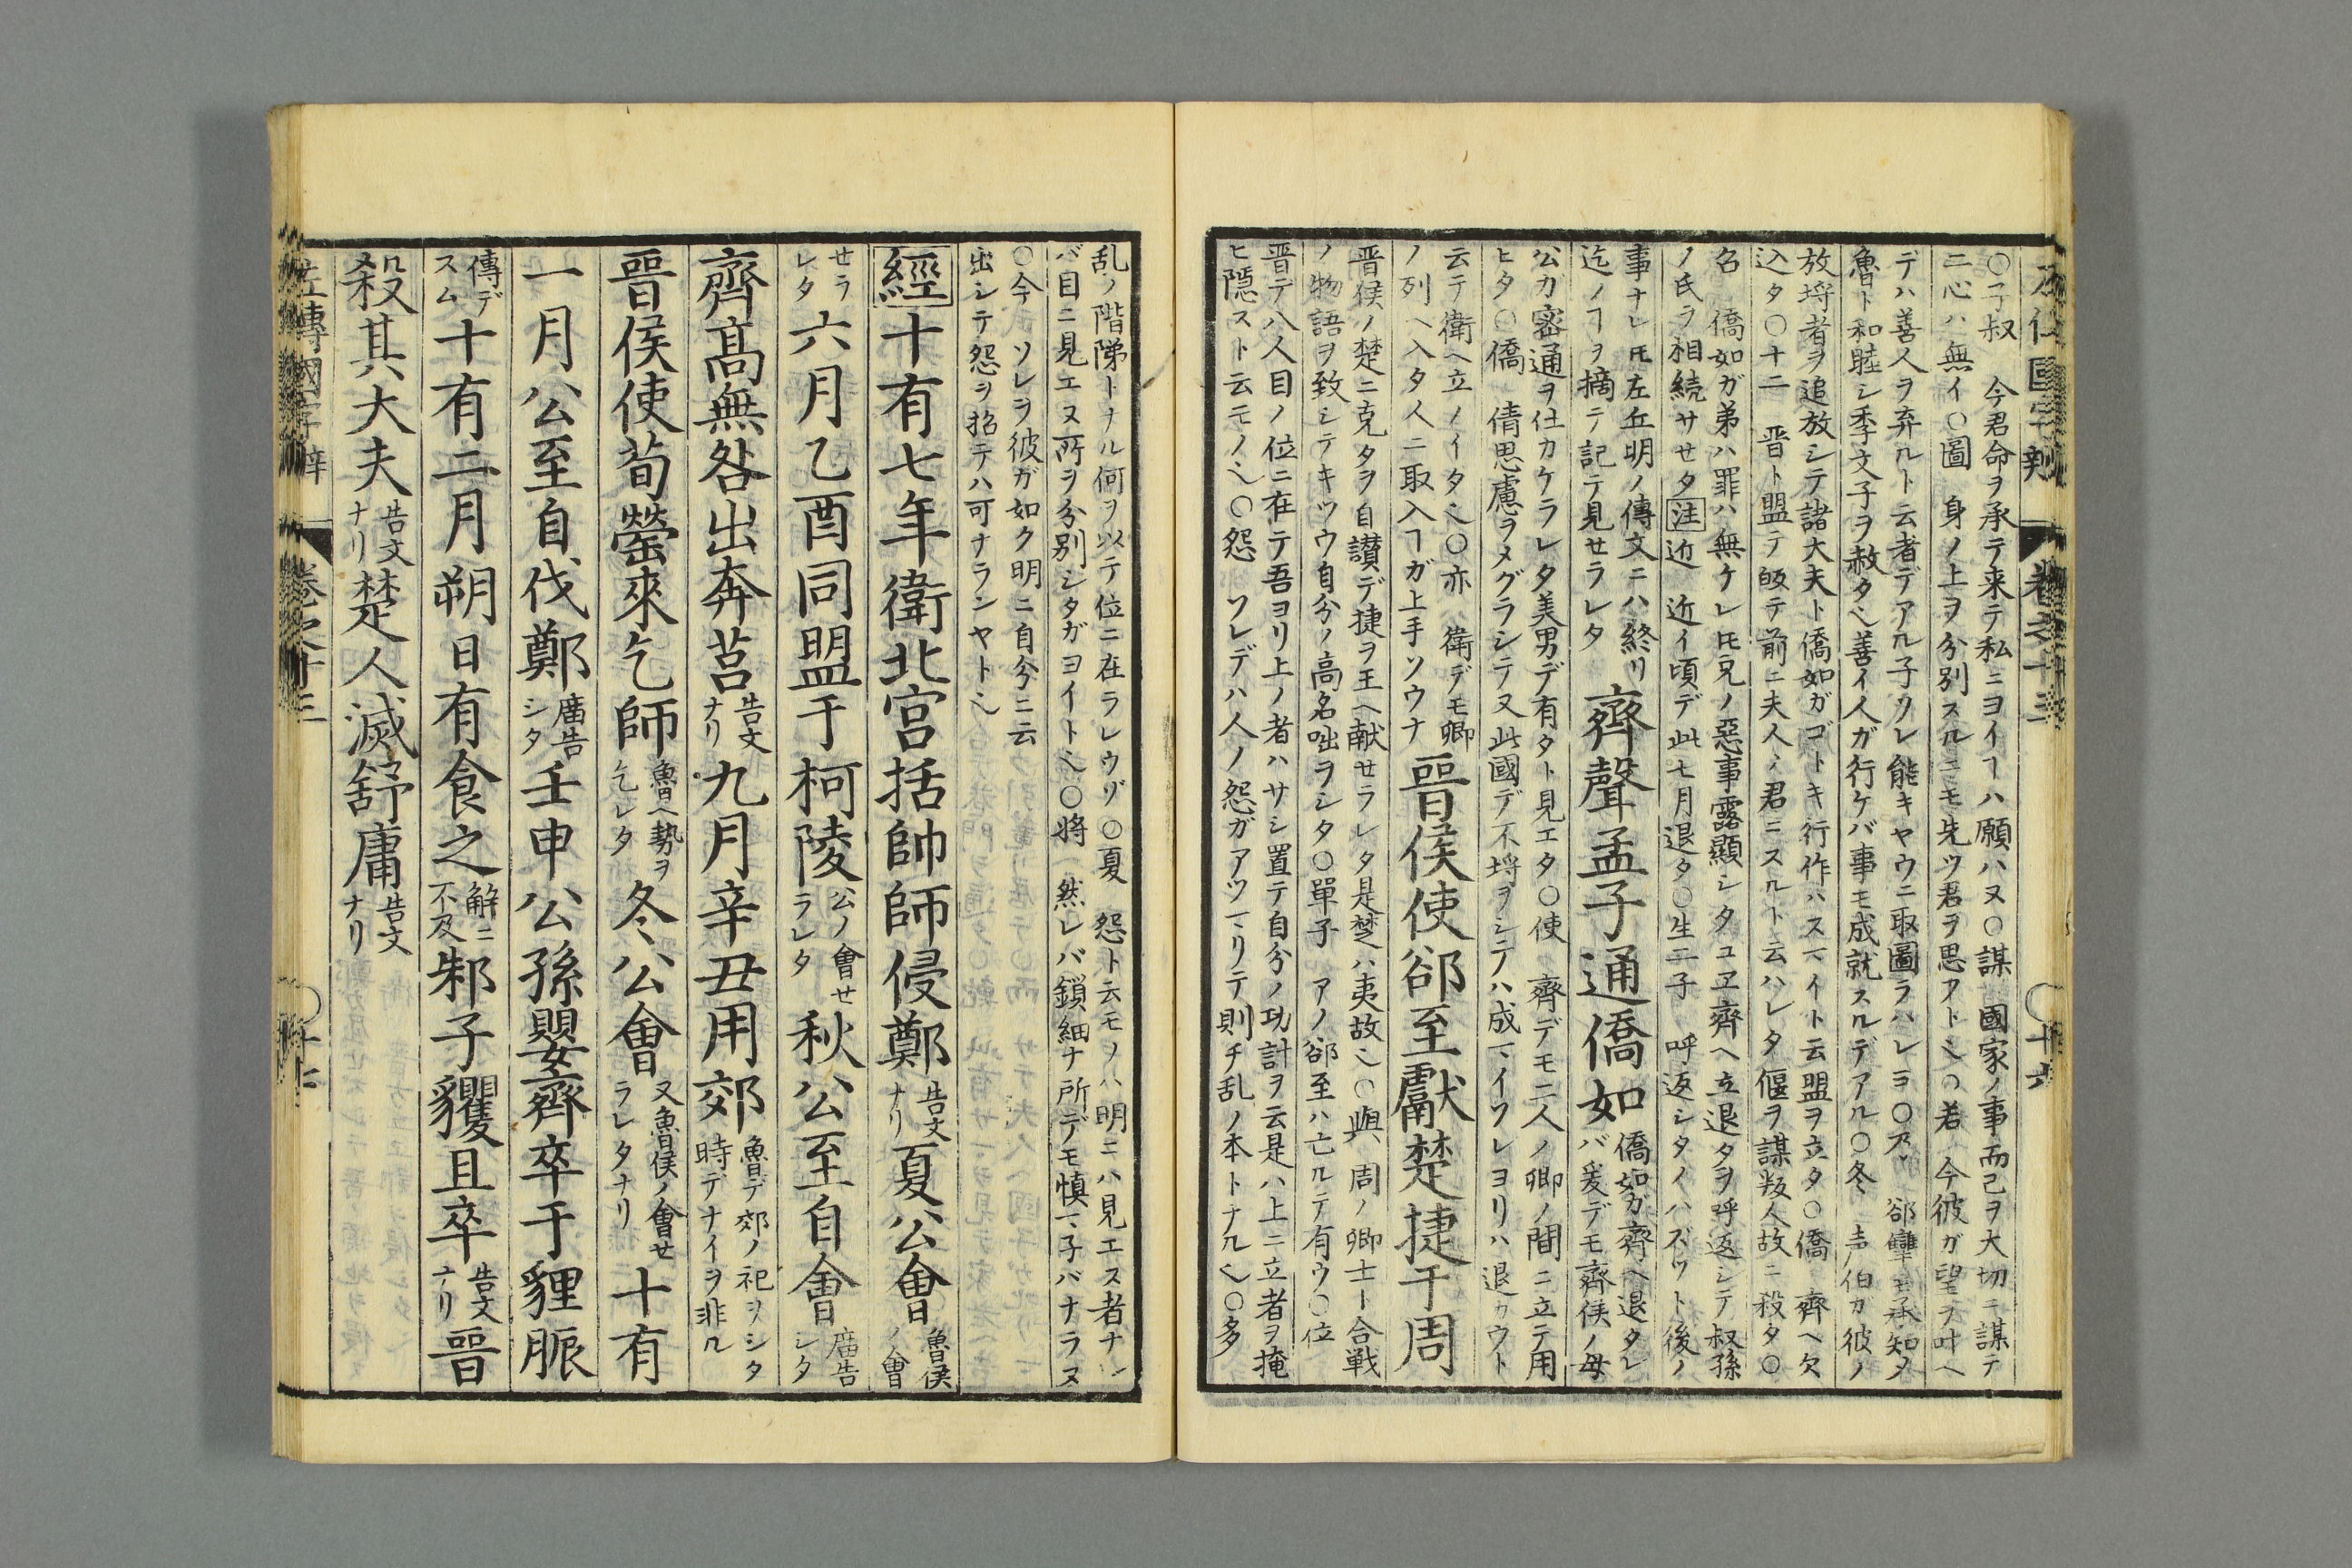 〇子叔　今君命ヲ承テ来テ私ニヨイヿハ願ハヌ〇謀　國家ノ事而己ヲ大切ニ謀テ
二心ハ無イ〇圖　身ノ上ヲ分別スルニモ先ツ君ヲ思アトヘ〇若　今彼ガ望ヲ叶ヘ
デハ善人ヲ弃ルト云者デアル子ソレ能キヤウニ取圖ラハレヨ〇乃　郤犫モ承知メ
魯ト和睦シ季文子ヲ赦タヘ善イ人ガ行ケバ事モ成就スルデアル〇冬　声伯カ彼ノ
放埒者ヲ追放シテ諸大夫ト僑如ガゴトキ行作ハスナイト云盟ヲ立タ〇僑　齊ヘ欠
込タ〇十二　晋ト盟テ皈テ前ニ夫人ノ君ニスルト云ハレタ偃ヲ謀叛人故ニ殺タ〇
名　僑如ガ弟ハ罪ハ無ケレ𪜈兄ノ惡事露顯シタユヱ齊ヘ立退タヲ呼返シテ叔孫
ノ氏ヲ相続サセタ注近　近イ頃デ此七月退タ〇生二子　呼返シタイハズワト後ノ
事ナレ𪜈左丘明ノ傳文ニハ終リ
迄ノヿヲ摘テ記テ見セラレタ
齊聲孟子通僑如
僑如ガ齊ヘ退タレ
バ爰デモ齊侯ノ母
公カ密通ヲ仕カケラレタ美男デ有タト見エタ〇使　齊デモ二人ノ卿ノ間ニ立テ用
ヒタ〇僑　倩思慮ヲメグラシテ又此國デ不埒ヲシテハ成マイワレヨリハ退カウト
云テ衛ヘ立ノイタヘ〇亦　衛デモ卿
ノ列ヘ入タ人ニ取入ヿガ上手ソウナ
晋侯使郤至獻楚捷于周
晋侯ノ楚ニ克タヲ自讃デ捷ヲ王ヘ献セラレタ是楚ハ夷故ヘ〇與　周ノ卿士ト合戦
ノ物語ヲ致シテキツウ自分ノ高名咄ヲシタ〇單子　アノ郤至ハ亡ルテ有ウ〇位
晋デ八人目ノ位ニ在テ吾ヨリ上ノ者ハサシ置テ自分ノ功計ヲ云是ハ上ニ立者ヲ掩
ヒ隠スト云モノヘ〇怨　ソレデハ人ノ怨ガアツマリテ則チ乱ノ本トナルヘ〇多
乱ノ階梯トナル何ヲ以テ位ニ在ラレウゾ〇夏　怨ト云モノハ明ニハ見エス者ナレ
バ目ニ見エヌ所ヲ分別シタガヨイトヘ〇將　然レバ鎖細ナ所デモ慎マ子バナラヌ
〇今　ソレヲ彼ガ如ク明ニ自分ニ云
出シテ怨ヲ招テハ可ナランヤトヘ
經十有七年衛北宮括帥師侵鄭告文ナリ夏公會魯侯ノ會
セラレタ六月乙酉同盟于柯陵公ノ會セラレタ秋公至自會廟告シタ
齊髙無咎出奔莒告文ナリ九月辛丑用郊魯デ郊ノ祀ヲシタ時デナイヲ非ル
晋侯使荀罃來乞師魯ヘ勢ヲ乞レタ冬公會又魯侯ノ會セラレタナリ十有
一月公至自伐鄭廟告シタ壬申公孫嬰齊卒于貍脤
傳デスム十有二月朔日有食之解ニ不及邾子貜且卒告文ナリ晋
殺其大夫告文ナリ楚人滅舒庸告文ナリ
左傳國字辯　卷之十三　十六
左傳國字辯　卷之十三　十七